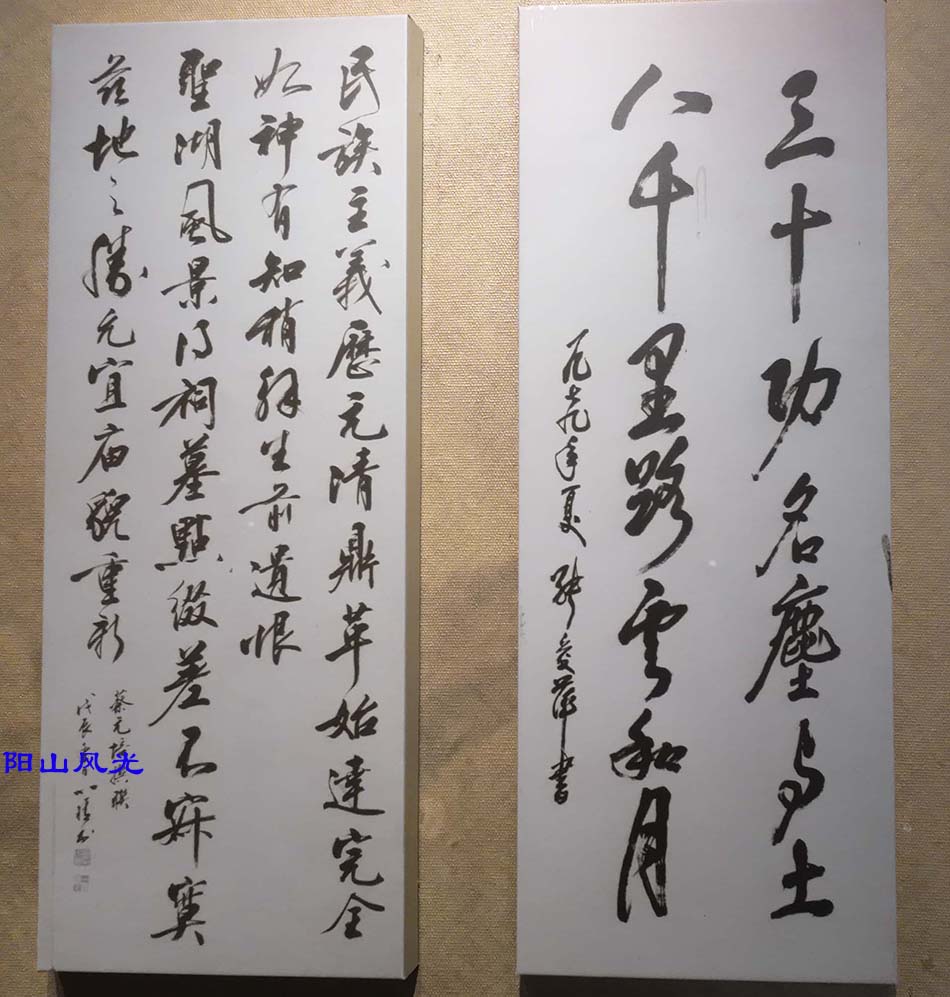 三十功名塵与土
八千里路云和月
一九七九年夏 張愛萍書
民族主義歷元清鼎革始達完全
如神有知稍釋生前遺恨
聖湖風景得祠墓點綴差不寂寞
茲地之勝允宜庙貌重新
蔡元培撰联
戊辰
阳山风光